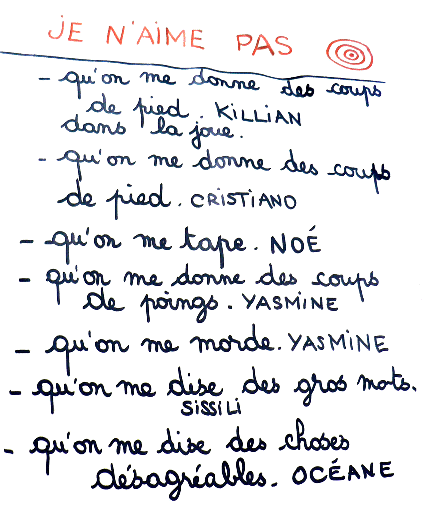 JE N'AIME PAS
- qu'on me donne des coups
de pied. KILLIAN
dans la joue.
- qu'on me donne des coups
de pied. CRISTIANO
- qu'on me tape. NOÉ
- qu'on me donne des coups
de poings. YASMINE
- qu'on me morde. YASMINE
- qu'on me dise des gros mots.
SISSILI
- qu'on me dise des choses
désagréables. OCÉANE